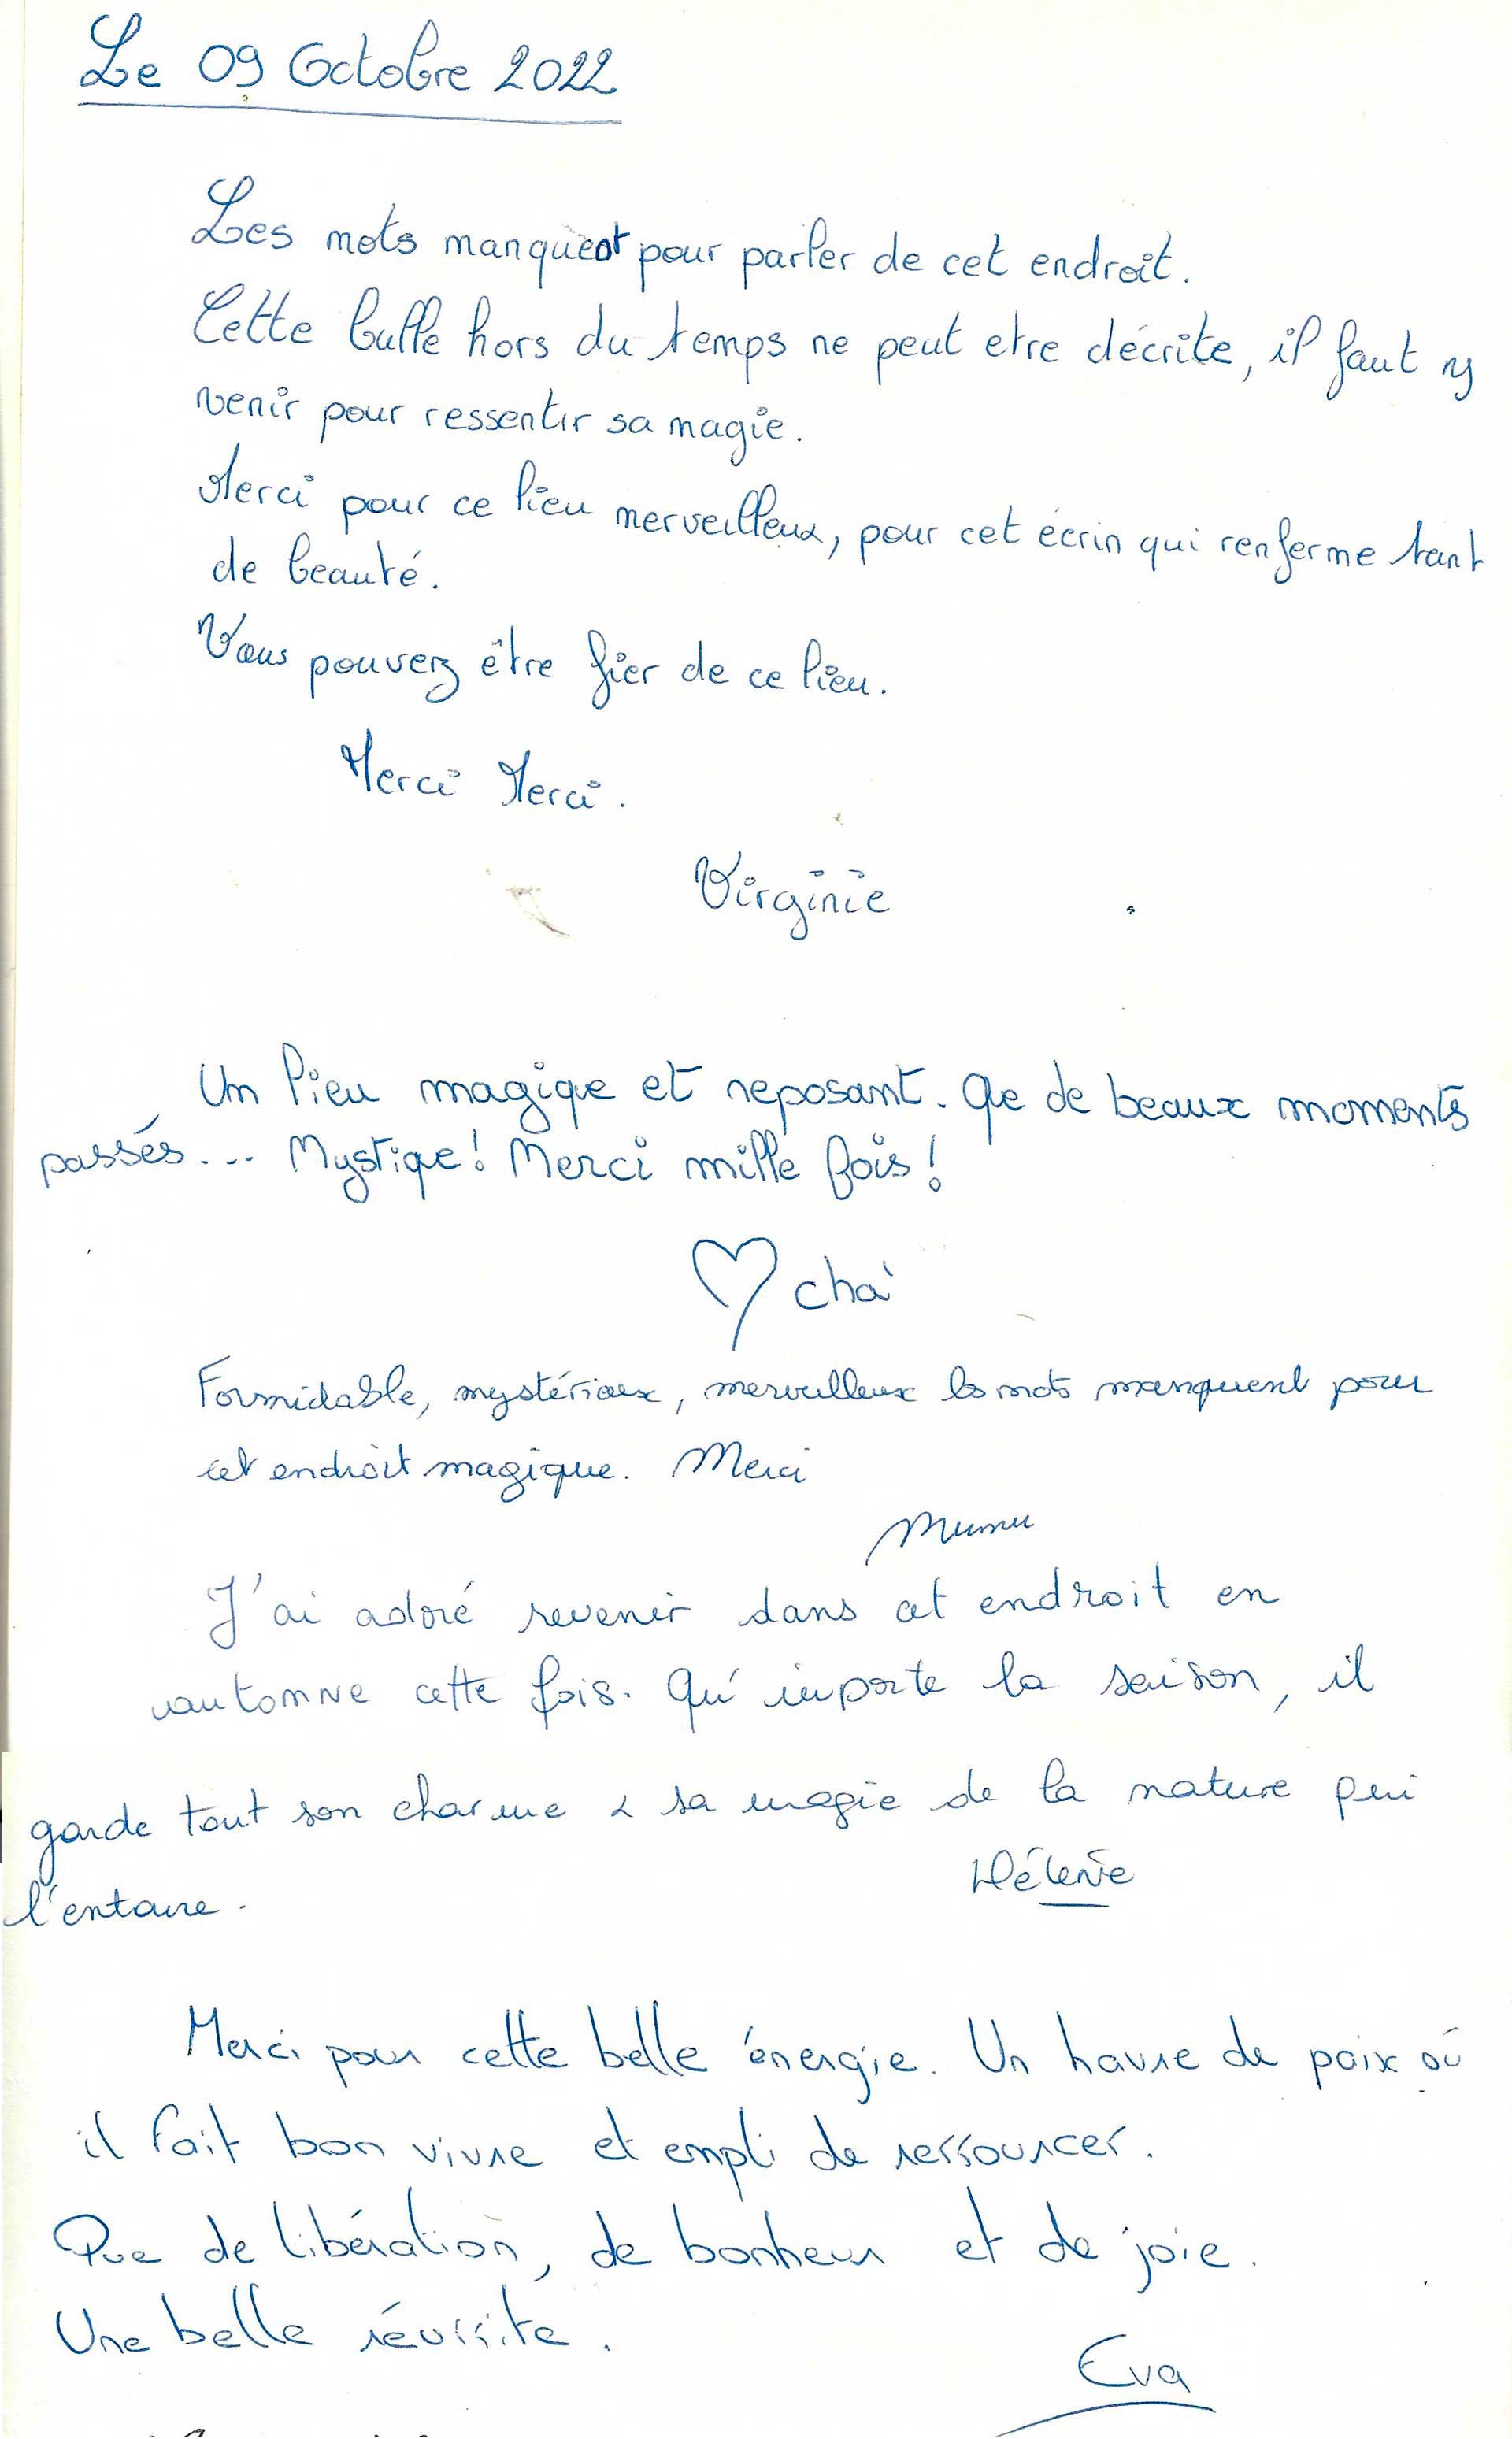 Le 09 Octobre 2022
Les mots manquent pour parler de cet endroit.
Cette bulle hors du temps ne peut etre décrite, il faut y
venir pour ressentir sa magie.
Merci pour ce lieu merveilleux, pour cet écrin qui renferme tant
de beauté.
Vous pouvez être fier de ce lieu.
Merci Merci.
Virginie
Un lieu magique et reposant. Que de beaux moments
passés... Mystique! Merci mille fois!
♡ cha'
Formidable, mystérieux, merveilleux les mots manquent pour
cet endroit magique. Merci
Mumu
J'ai adoré revenir dans cet endroit en
automne cette fois. Qu'importe la saison, il
garde tout son charme & sa magie de la nature qui
l'entoure.
Hélène
Merci pour cette belle énergie. Un havre de paix où
il fait bon vivre et empli de ressourcer.
Que de libération, de bonheur et de joie.
Une belle réussite.
Eva